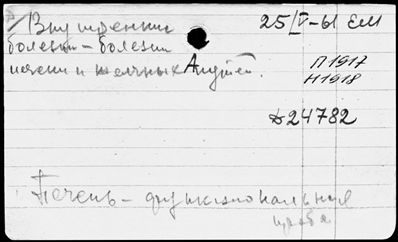 Внутренние
25/V-61 ЕМ
болезни – болезни
печени и желчных путей.
П1917
Н1918
24782
Печень – функциональная
проба